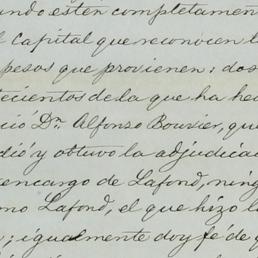 ando estén completamen
l Capital que reconocen l
pesos que provienen: dos
tecientos de la que ha hec
ció Dn. Alfonso Bouvier, que
dió y obtuvo la adjudicac
encargo de Lafond, nin
mo Lafond, el que hizo la
; igualmente doy fé de q